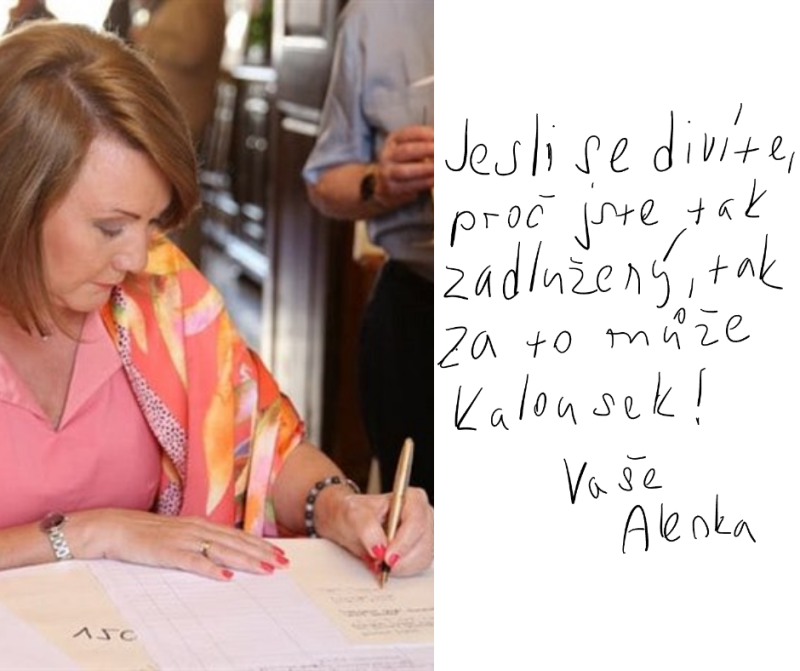 Jesli se divíte,
proč jste tak
zadlužený, tak
za to může
Kalousek!
Vaše
Alenka